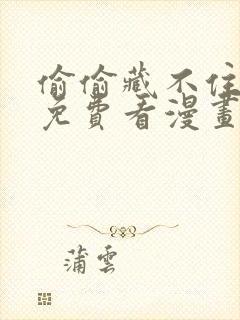 偷偷藏不住
免費看漫畫
蒲雲